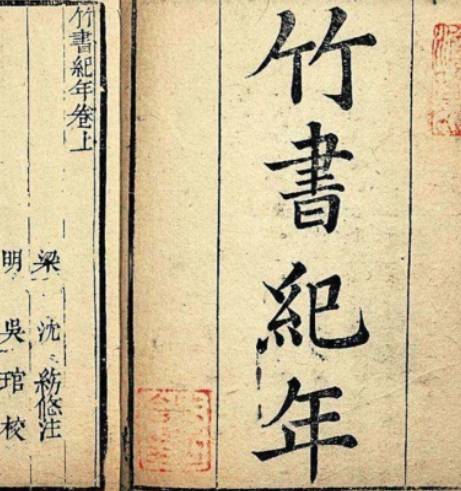 竹書紀年
竹書紀年卷上
梁 沈 紡悠注
明 吳 琯 校